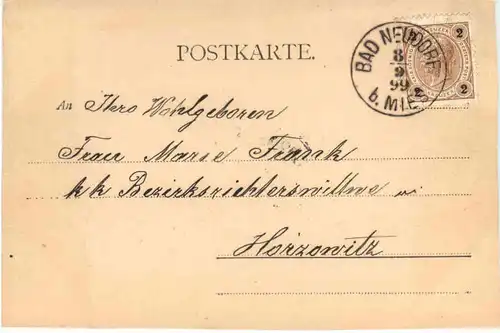 POSTKARTE.
BAD NEUDORF
8
9
99
b. MIES
2
2 2
An Ihro Wohlgeboren
Frau Marie Frank
k k Bezirksrichterswittwe in
Horzowitz